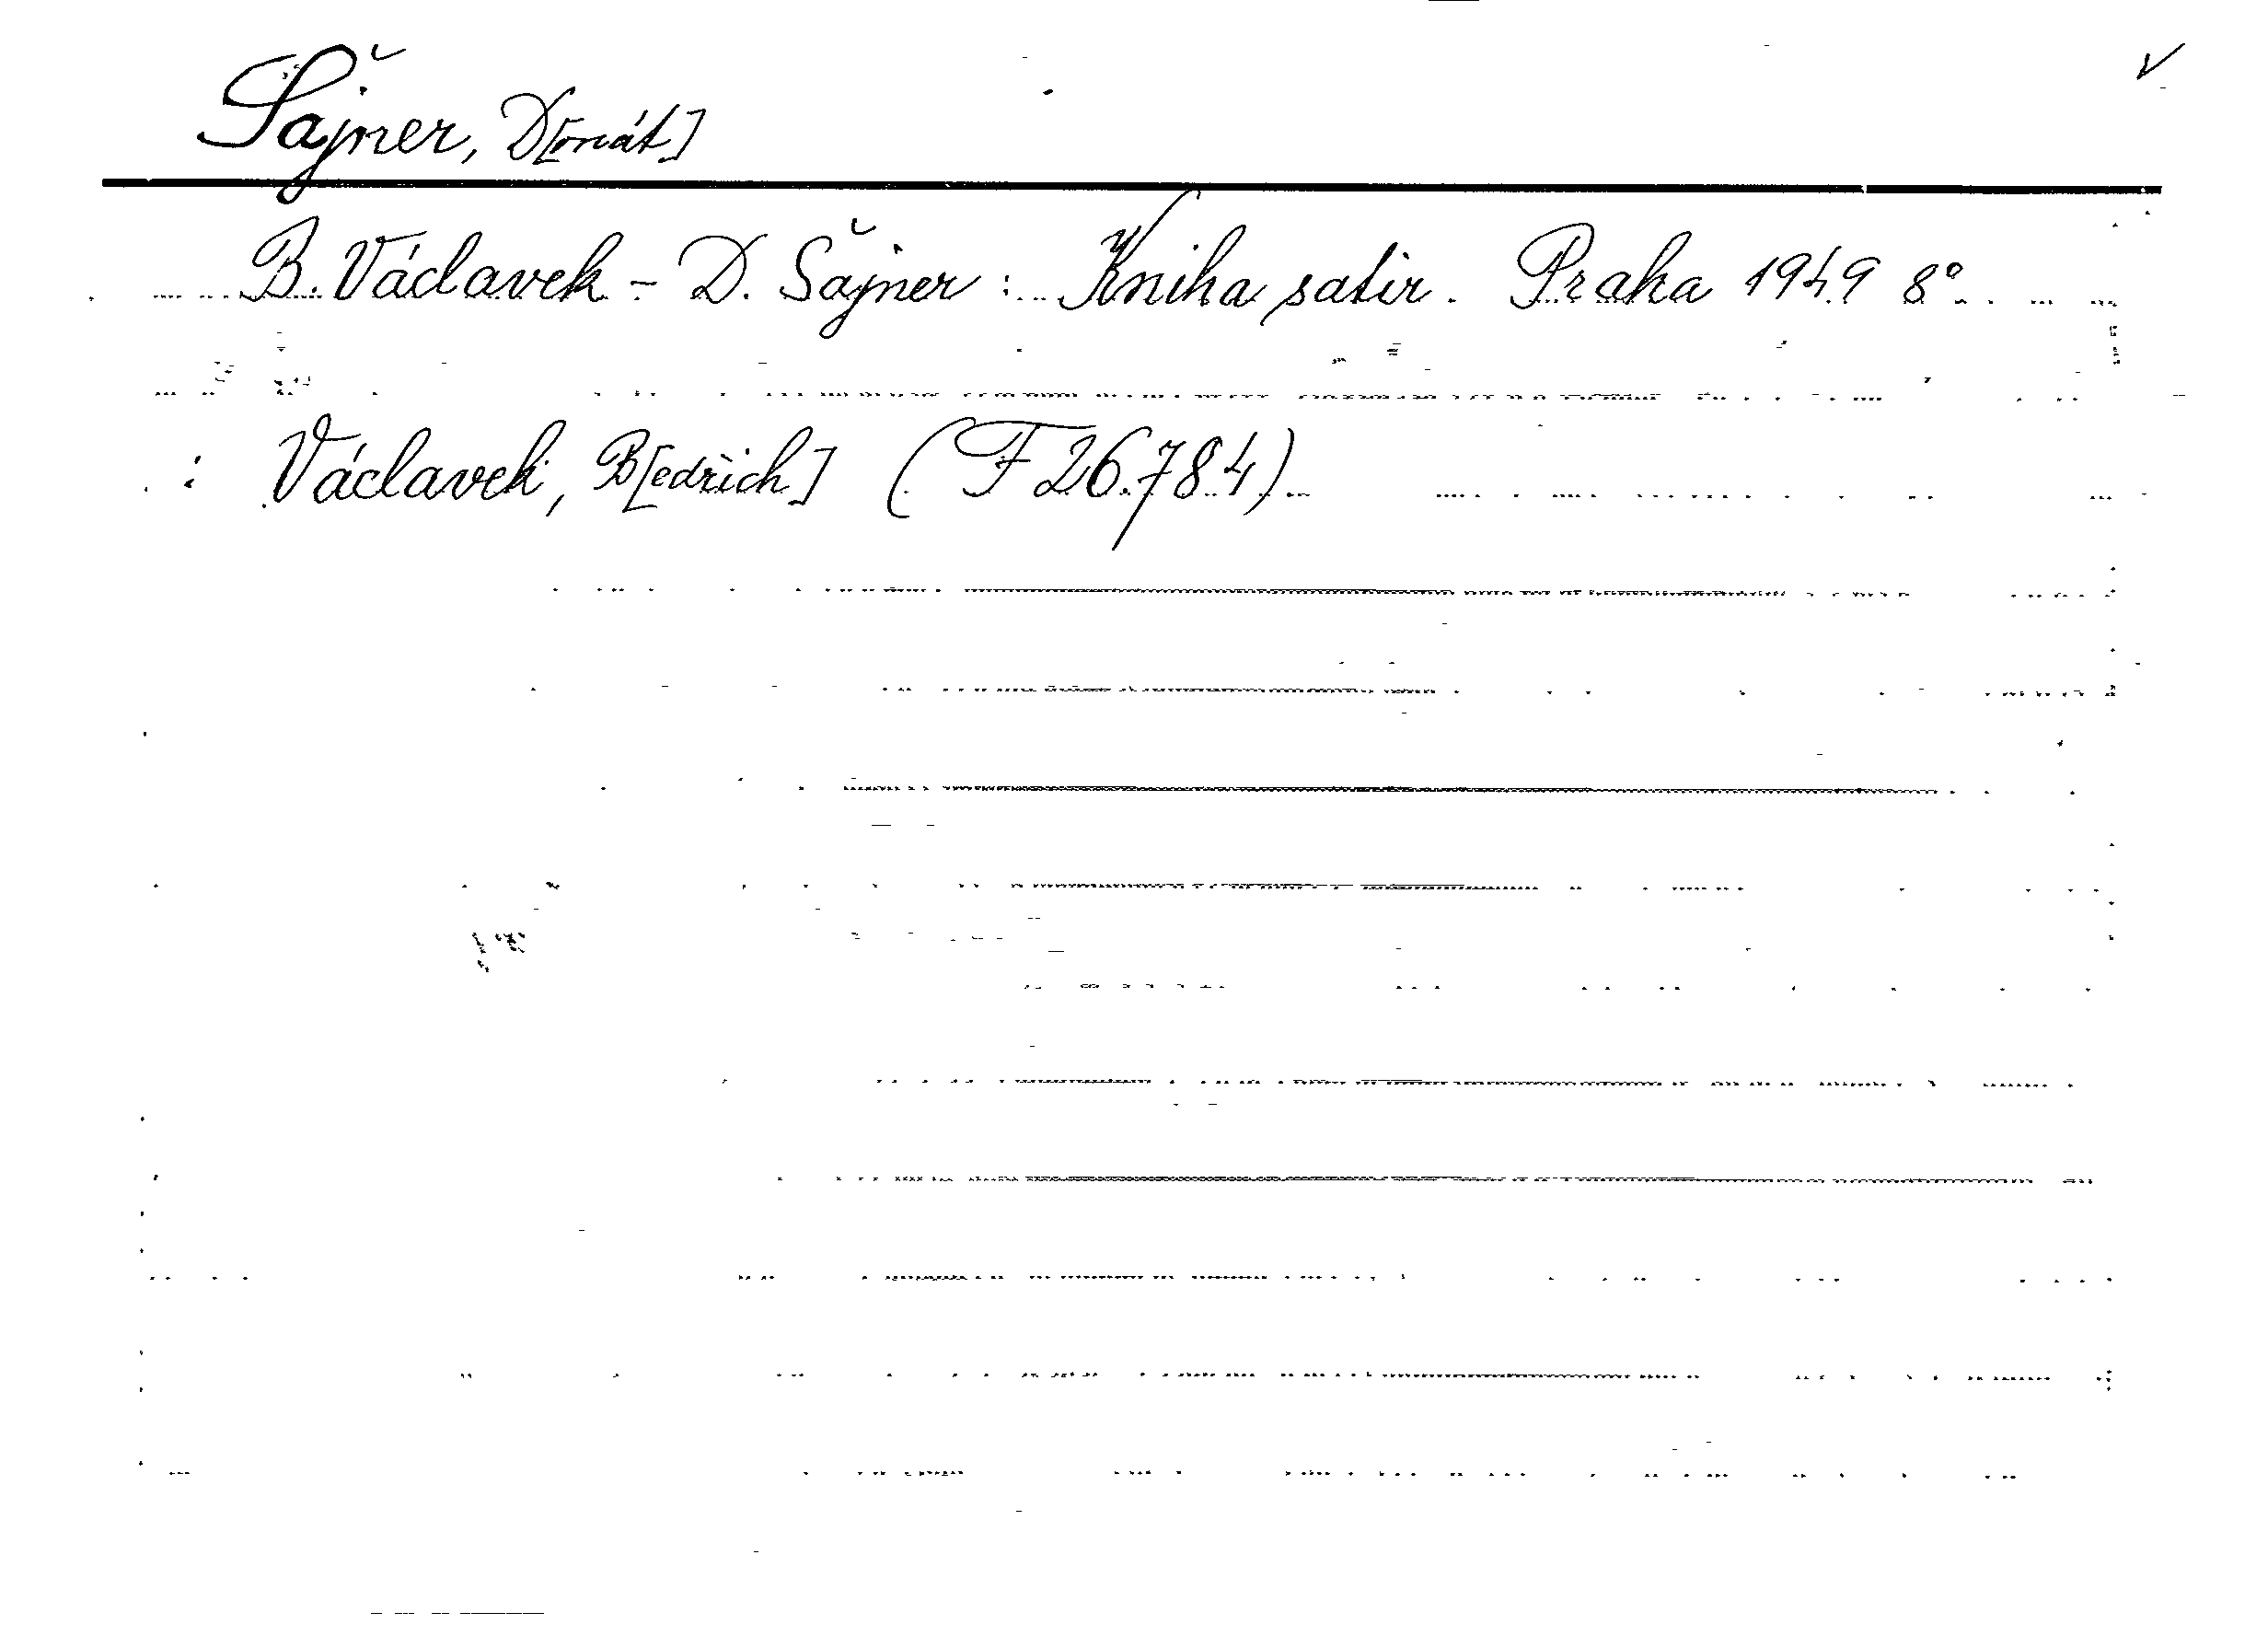 Šajner, D[onát]
B. Václavek - D. Šajner : Kniha satir. Praha 1949 8°
: Václavek, B[edřich] (F 26.784)